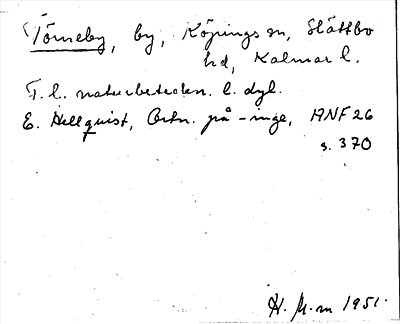 Törneby, by, Köpings sn, Slättbo
hd, Kalmar l.
T. l. naturbeteckn. l. dyl.
E. Hellquist, Ortn. på -inge, ANF 26
s. 370
H. M-m 1951.